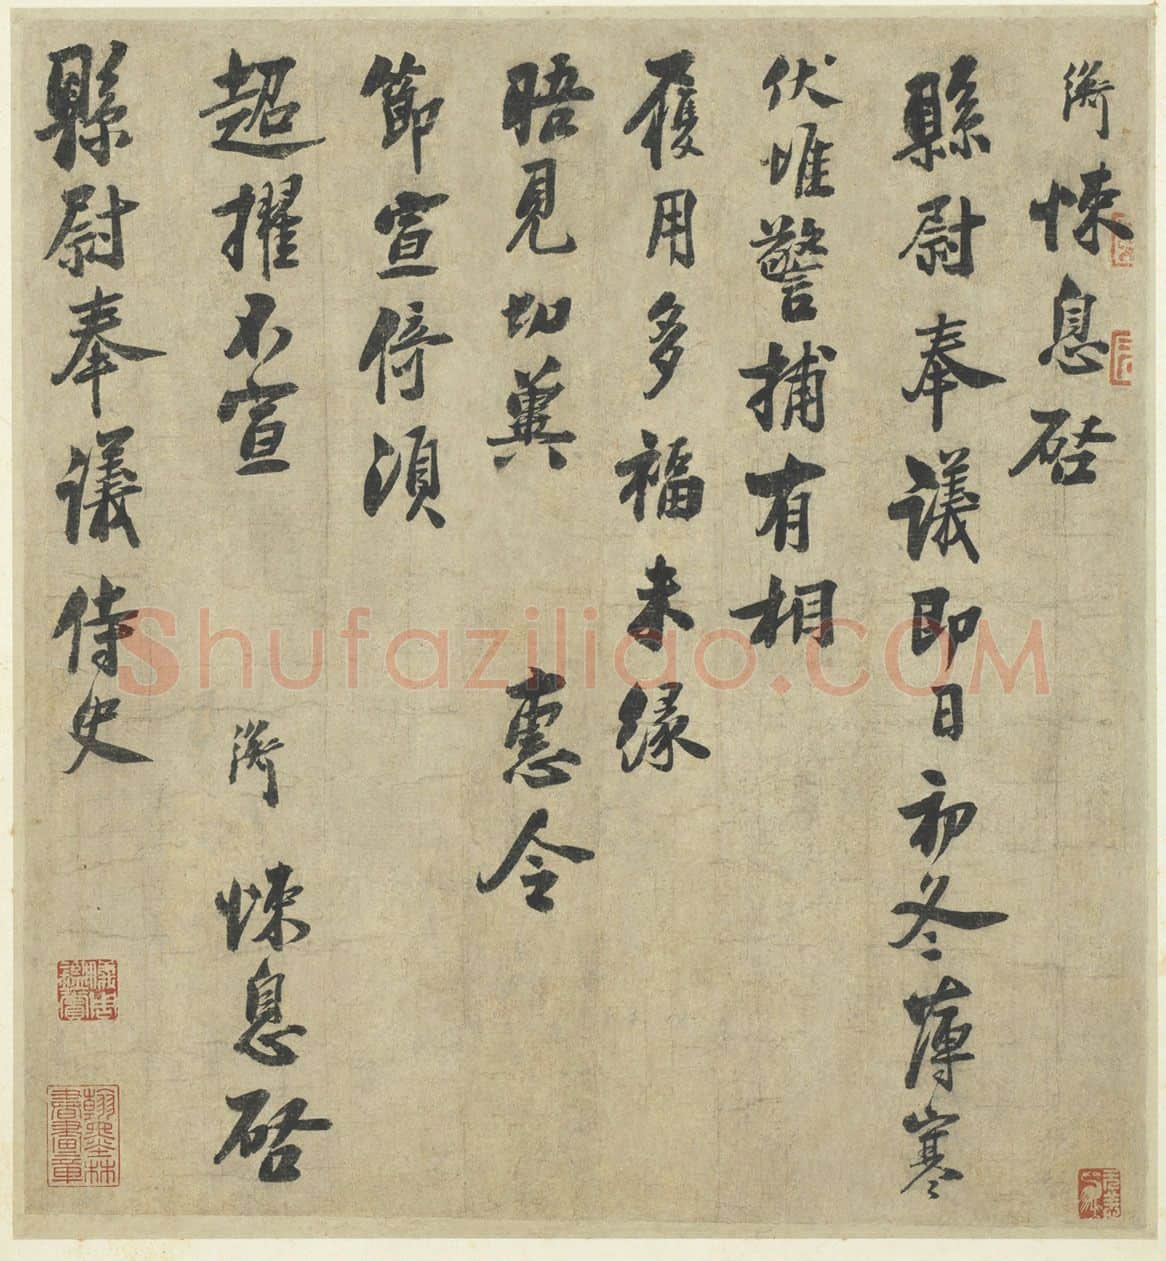 悚息启
縣尉奉議即日初冬薄寒
伏惟警捕有相
履用多福未緣
晤見切冀 惠令
節宣倚須
超擢不宣 悚息启
縣尉奉議侍史
儀周鑑賞
翰墨林書畫章
Shufaziliao.COM